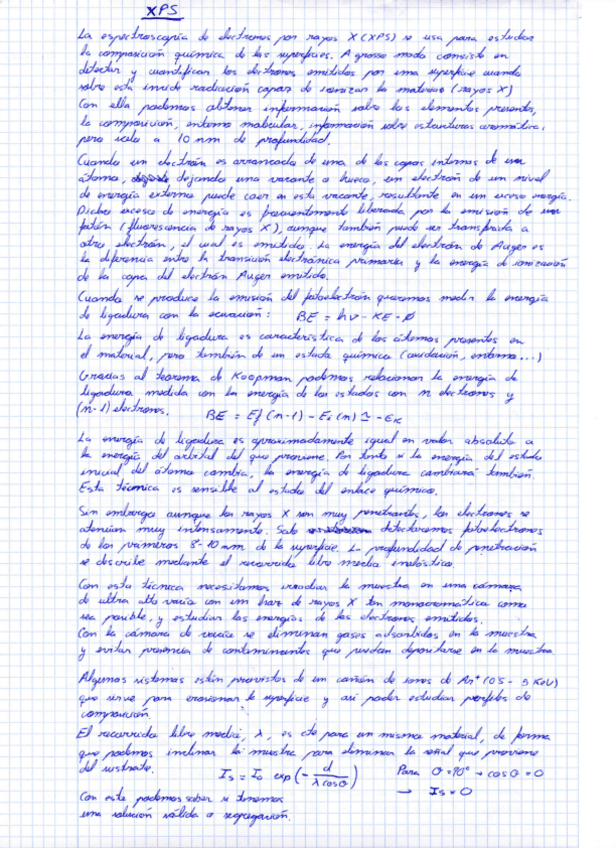 XPS
La espectroscopía de electrones por rayos X (XPS) se usa para estudiar
la composición química de las superficies. A grosso modo consiste en
detectar y cuantificar los electrones emitidos por una superficie cuando
sobre esta incide radiación capaz de ionizar la materia (rayos X)
Con ella podemos obtener información sobre los elementos presentes,
la composición, entorno molecular, información sobre estructuras aromática,
pero solo a 10 nm de profundidad.
Cuando un electrón es arrancado de una de las capas internas de un
átomo, dejando una vacante o hueco, un electrón de un nivel
de energía externo puede caer en esta vacante, resultante en un exceso energía.
Dicho exceso de energía es frecuentemente liberada, por la emisión de un
fotón (fluorescencia de rayos X), aunque también puede ser transferida a
otro electrón, el cual es emitido. La energía del electrón de Auger es
la diferencia entre la transición electrónica primaria y la energía de ionización
de la capa del electrón Auger emitido.
Cuando se produce la emisión del fotoelectrón queremos medir la energía
de ligadura con la ecuación: BE = hν - KE - Ø
La energía de ligadura es característica de los átomos presentes en
el material, pero también de un estado químico (oxidación, entorno...)
Gracias al teorema de Koopman podemos relacionar la energía de
ligadura medida con la energía de los estados con n electrones y
(n-1) electrones. BE = Ef (n-1) - Ei (n) ≃ - EK
La energía de ligadura es aproximadamente igual en valor absoluto a
la energía del orbital del que proviene. Por tanto si la energía del estado
inicial del átomo cambia, la energía de ligadura cambiará también.
Esta técnica es sensible al estado del enlace químico.
Sin embargo aunque los rayos X son muy penetrantes, los electrones se
atenúan muy intensamente. Solo detectaremos fotoelectrones
de los primeros 8-10 nm de la superficie. La profundidad de penetración
se describe mediante el recorrido libre medio inelástico.
Con esta técnica necesitamos irradiar la muestra en una cámara
de ultra alto vacío con un haz de rayos X tan monocromática como
sea posible, y estudiar las energías de los electrones emitidos.
Con la cámara de vacío se eliminan gases adsorbidos en la muestra
y evitar presencia de contaminantes que puedan depositarse en la muestra
Algunos sistemas están provistos de un cañón de iones de Ar⁺ (0.5 - 5 KeV)
que sirve para erosionar la superficie y así poder estudiar perfiles de
composición.
El recorrido libre medio, λ, es cte para un mismo material, de forma
que podemos inclinar la muestra para eliminar la señal que proviene
del sustrato. Is = Io exp (- d / λ cosθ) Para θ = 90° → cos θ = 0
→ Is = 0
Con esto podemos saber si tenemos
una solución sólida o segregación.